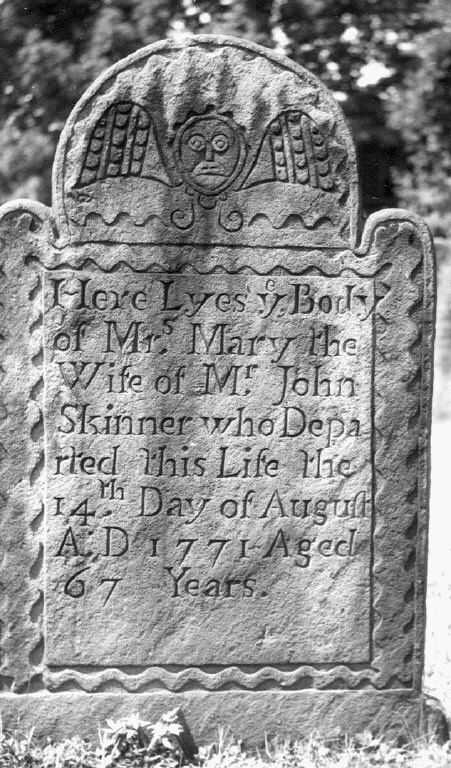 Here Lyes yᵉ Body
of Mrˢ. Mary the
Wife of Mʳ. John
Skinner who Depa
rted this Life the
14.ᵗʰ Day of August
A:D 1771 Aged
67 Years.